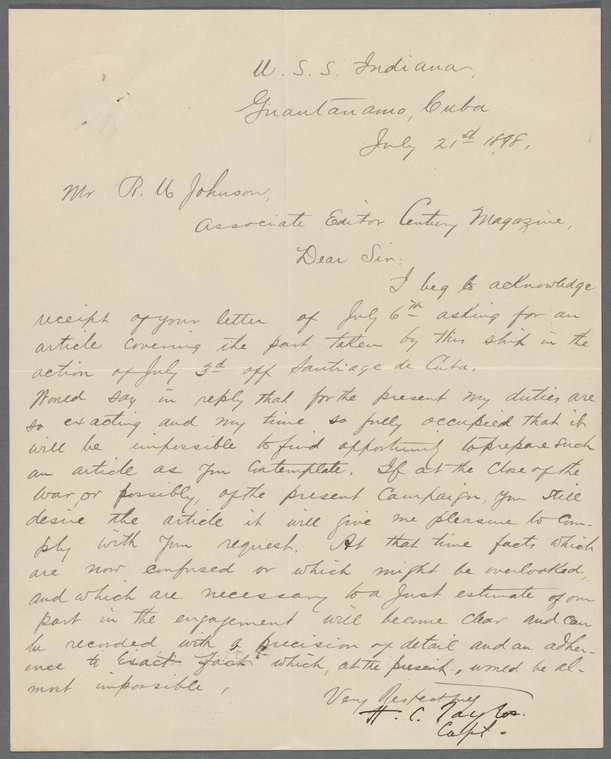 U. S. S. Indiana,
Guantanamo, Cuba
July 21st 1898,
Mr R. U Johnson,
Associate Editor Century Magazine,
Dear Sir:
I beg to acknowledge
receipt of your letter of July 6th asking for an
article covering the part taken by this ship in the
action of July 3d off Santiago de Cuba.
Would say in reply that for the present my duties are
so exacting and my time so fully occupied that it
will be impossible to find opportunity to prepare such
an article as you contemplate. If at the close of the
war, or possibly, of the present campaign, you still
desire the article it will give me pleasure to com-
ply with your request. At that time facts which
are now confused or which might be overlooked,
and which are necessary to a just estimate of our
part in the engagement will become clear and can
be recorded with a precision of detail and an adher-
ence to exact fact which, at the present, would be al-
most impossible,
Very Respectfully
H. C. Taylor.
Capt.